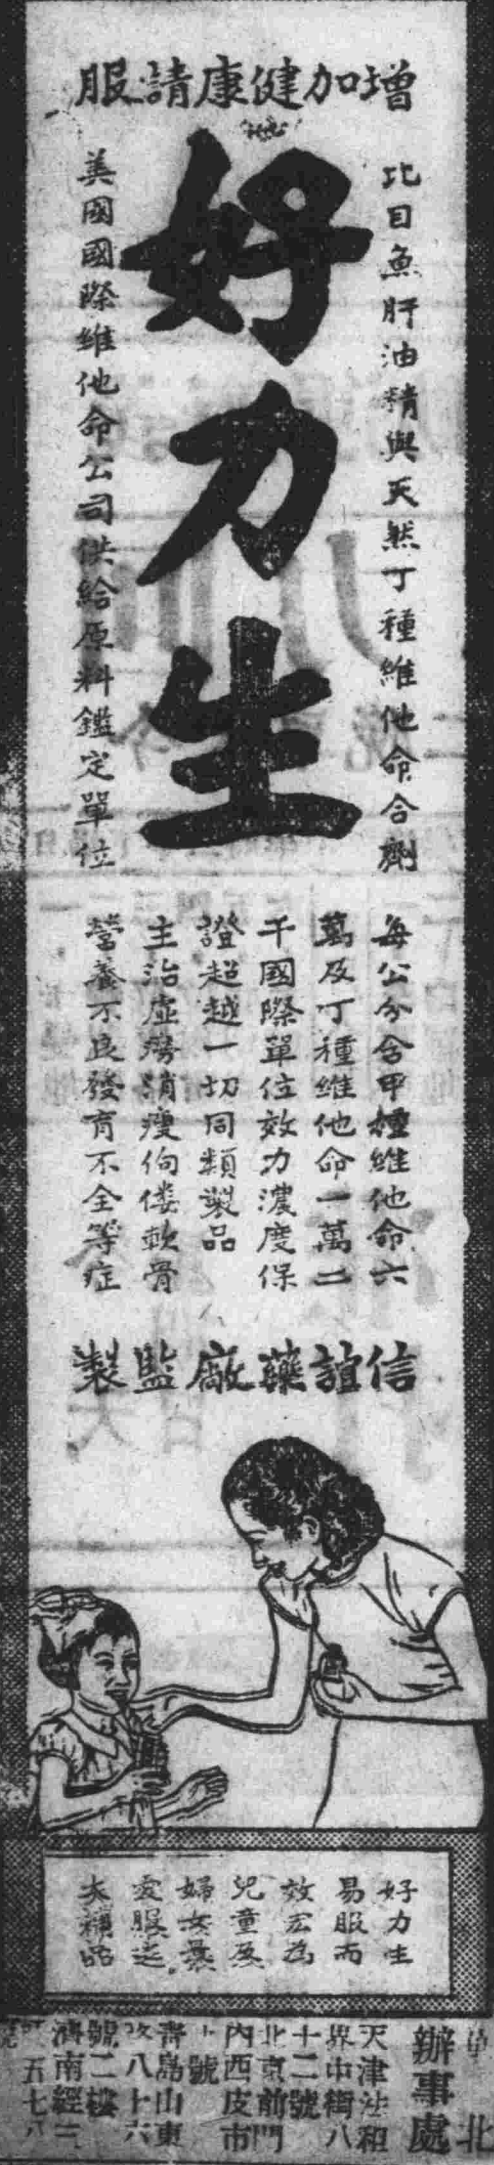 增加健康請服
比目魚肝油精與天然丁種維他命合劑
好力生
美國國際維他命公司供給原料鑑定單位
每公分含甲種維他命六
萬及丁種維他命一萬二
千國際單位效力濃度保
證超越一切同類製品
主治虛癆消瘦佝僂軟骨
營養不良發育不全等症
信誼藥廠監製
好力生
易服而
效宏為
兒童及
婦女最
愛服之
大補品
華北
辦事處
天津法租
界中街八
十二號
北京前門
內西皮市
號
青島山東
路八十六
號二樓
濟南經三
五七八